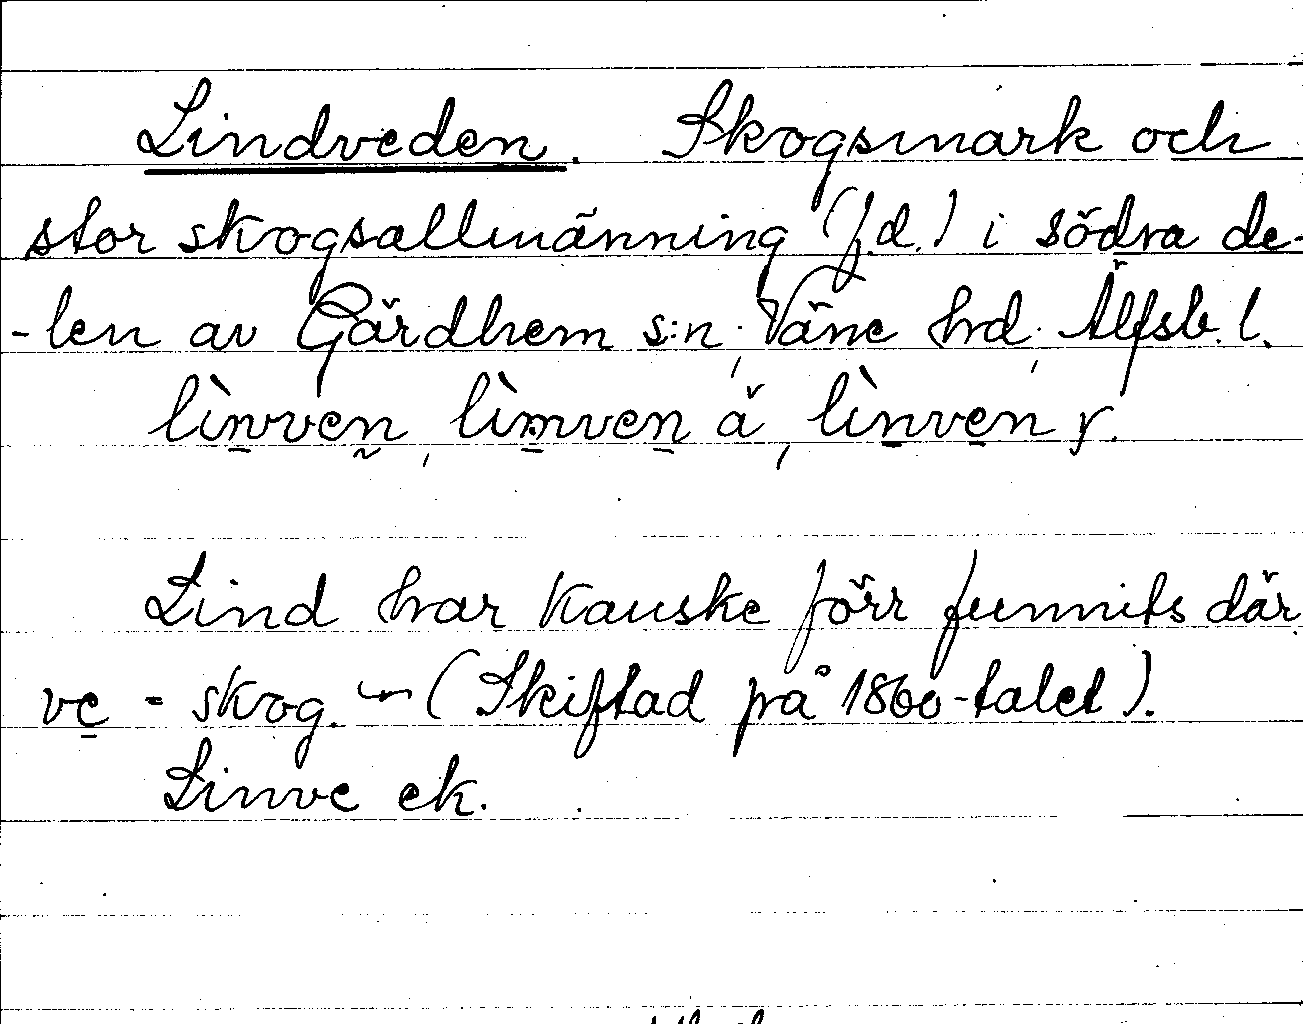 Lindveden. Skogsmark och
stor skogsallmänning (f.d.) i södra de-
-len av Gärdhem s:n, Väne hd, Älfsb. l.
lìnven, lìmven å, lìnven r.
Lind har kanske förr funnits där
ve - skog. (Skiftad på 1860-talet).
Linve ek.